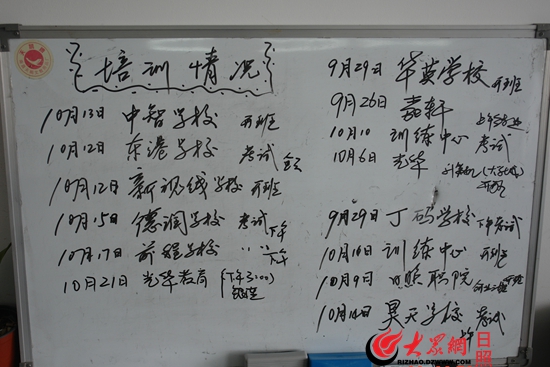 培训情况
10月13日 中智学校 开班
10月12日 东港学校 考试 全天
10月12日 新视线学校 开班
10月15日 德润学校 考试 下午
10月17日 前程学校 〃 〃 下午
10月21日 光华教育 (下午3:00)
9月29日 华英学校 开班
9月26日 嘉轩
10月10 训练中心 考试
10月6日 光华
9月29日 丁码学校 下午考试
10月10日 训练中心 开班
10月9日 日照职院
昊天学校 考试
大众网 日照
RIZHAO.DZWWW.COM